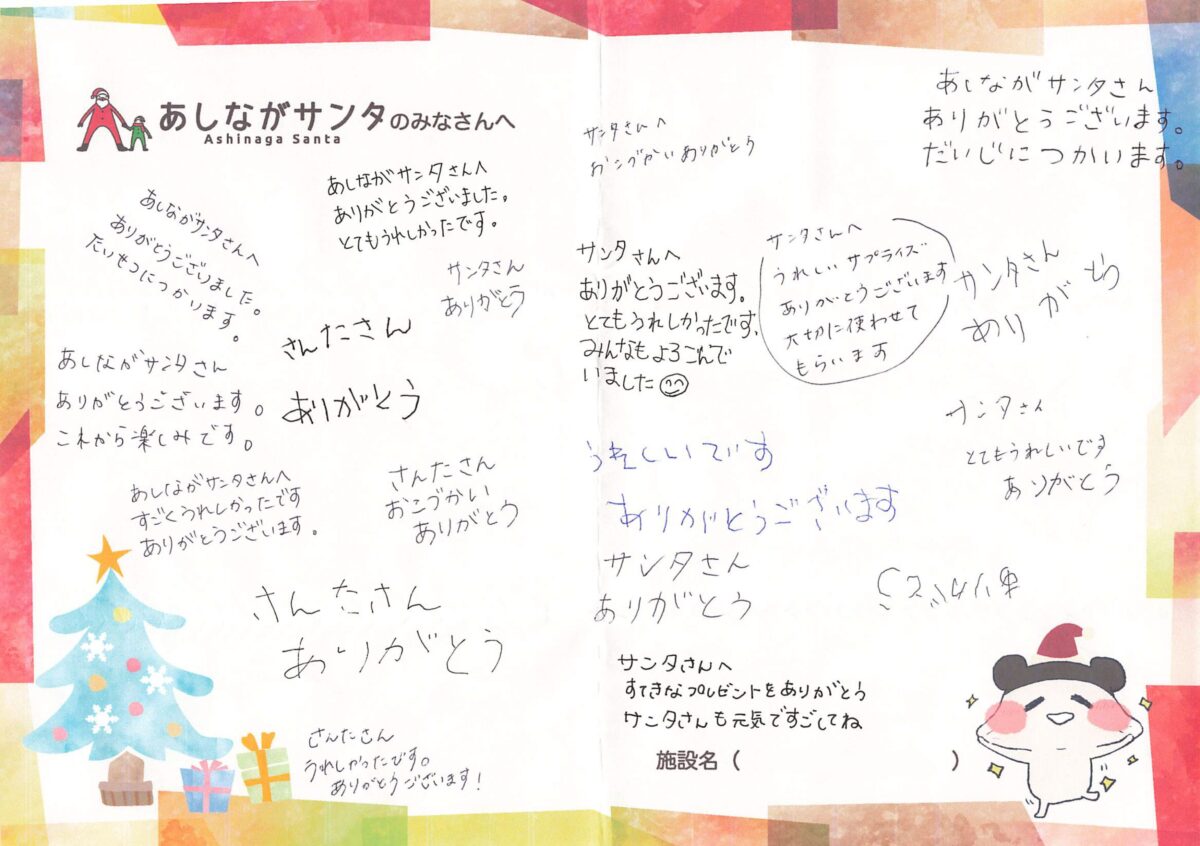 あしながサンタのみなさんへ
Ashinaga Santa
あしながサンタさんへ
ありがとうございました。
とてもうれしかったです。
あしながサンタさんへ
ありがとうございました。
たいせつにつかいます。
サンタさん
ありがとう
さんたさん
ありがとう
あしながサンタさん
ありがとうございます。
これから楽しみです。
あしながサンタさんへ
すごくうれしかったです
ありがとうございます。
さんたさん
おこづかい
ありがとう
さんたさん
ありがとう
さんたさん
うれしかったです。
ありがとうございます!
サンタさんへ
おこづかいありがとう
あしながサンタさん
ありがとうございます。
だいじにつかいます。
サンタさんへ
ありがとうございます。
とてもうれしかったです。
みんなもよろこんで
いました
サンタさんへ
うれしいサプライズ
ありがとうございます
大切に使わせて
もらいます
サンタさん
ありがとう
サンタさん
とてもうれしいです
ありがとう
です
ありがとうございます
サンタさん
ありがとう
サンタさんへ
すてきなプレゼントをありがとう
サンタさんも元気ですごしてね
施設名( )